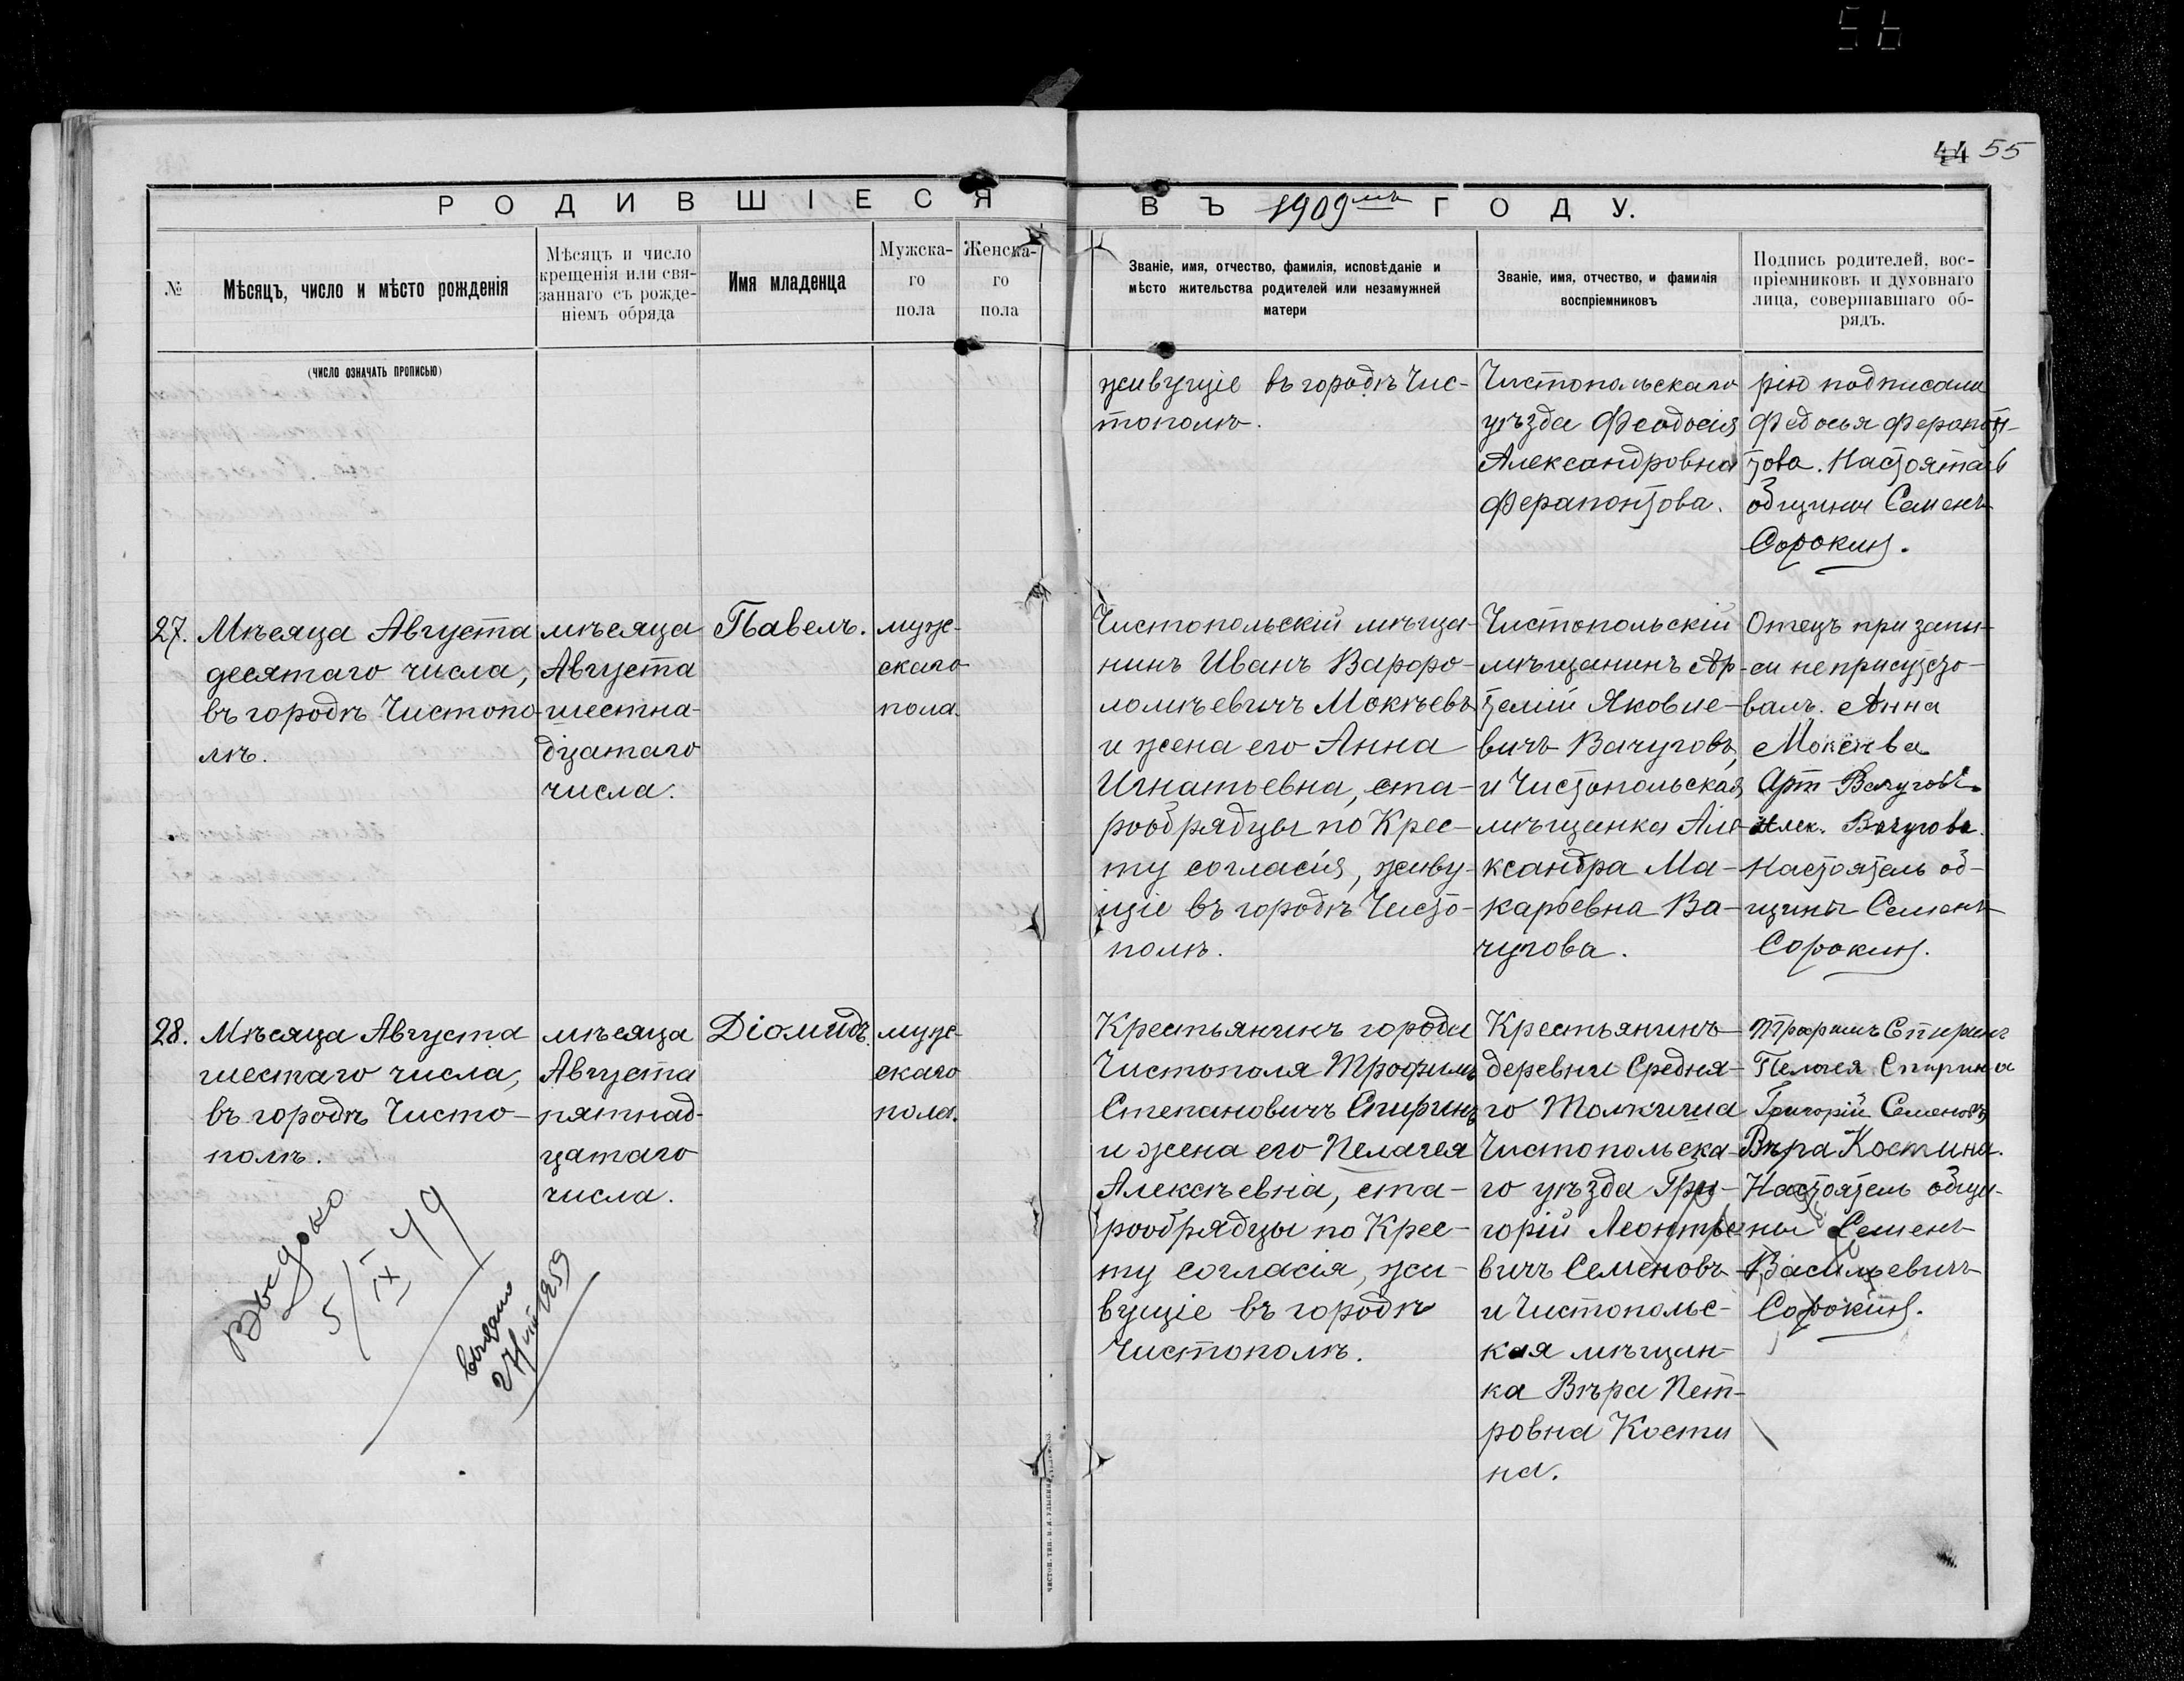 56
44 55
РОДИВШІЕСЯ
ВЪ 1909мъ ГОДУ.
№
Мѣсяцъ, число и мѣсто рожденія
Мѣсяцъ и число
крещенія или свя-
заннаго съ рожде-
ніемъ обряда
Имя младенца
Мужска-
го
пола
Женска-
го
пола
Званіе, имя, отчество, фамилія, исповѣданіе и
мѣсто жительства родителей или незамужней
матери
Званіе, имя, отчество, и фамилія
воспріемниковъ
Подпись родителей, вос-
пріемниковъ и духовнаго
лица, совершавшаго об-
рядъ.
(число означать прописью)
живущіе въ городѣ Чис-
тополѣ.
Чистопольскаго
уѣзда Феодосія
Александровна
Ферапонтова.
рію подписала
Федосья Ферапон-
това. Настоятель
общины Семенъ
Сорокинъ.
27.
Мѣсяца Августа
десятаго числа,
въ городѣ Чистопо-
лѣ.
мѣсяца
Августа
шестна-
дцатаго
числа.
Павелъ.
муж-
скаго
пола.
Чистопольскій мѣща-
нинъ Иванъ Варфо-
ломѣевичъ Мокѣевъ
и жена его Анна
Игнатьевна, ста-
рообрядцы по Крес-
ту согласія, живу-
щіе въ городѣ Чисто-
полѣ.
Чистопольскій
мѣщанинъ Ар-
темій Яковле-
вичъ Вачуговъ,
и Чистопольская
мѣщанка Але-
ксандра Ма-
карьевна Ва-
чугова.
Отецъ при запи-
си не присутство-
валъ. Анна
Мокеева
Арт Вачуговъ
Алек. Вачугова.
Настоятель об-
щины Семенъ
Сорокинъ.
28.
Мѣсяца Августа
шестаго числа,
въ городѣ Чисто-
полѣ.
мѣсяца
Августа
пятнад-
цатаго
числа.
Діомидъ.
муж-
скаго
пола.
Крестьянинъ города
Чистополя Трофимъ
Степановичъ Спиринъ
и жена его Пелагея
Алексѣевна, ста-
рообрядцы по Крес-
ту согласія, жи-
вущіе въ городѣ
Чистополѣ.
Крестьянинъ
деревни Средня-
го Толкиша
Чистопольска-
го уѣзда Гри-
горій Леонтье-
вичъ Семеновъ
и Чистопольс-
кая мѣщан-
ка Вѣра Пет-
ровна Кости
на.
Трофимъ Спиринъ
Пелагея Спирина
Григорій Семеновъ
Вѣра Костина.
Настоятель общи-
ны Семенъ
Васильевичъ
Сорокинъ.
Выдано
5/IX 49
выдано
27/VIII 1959